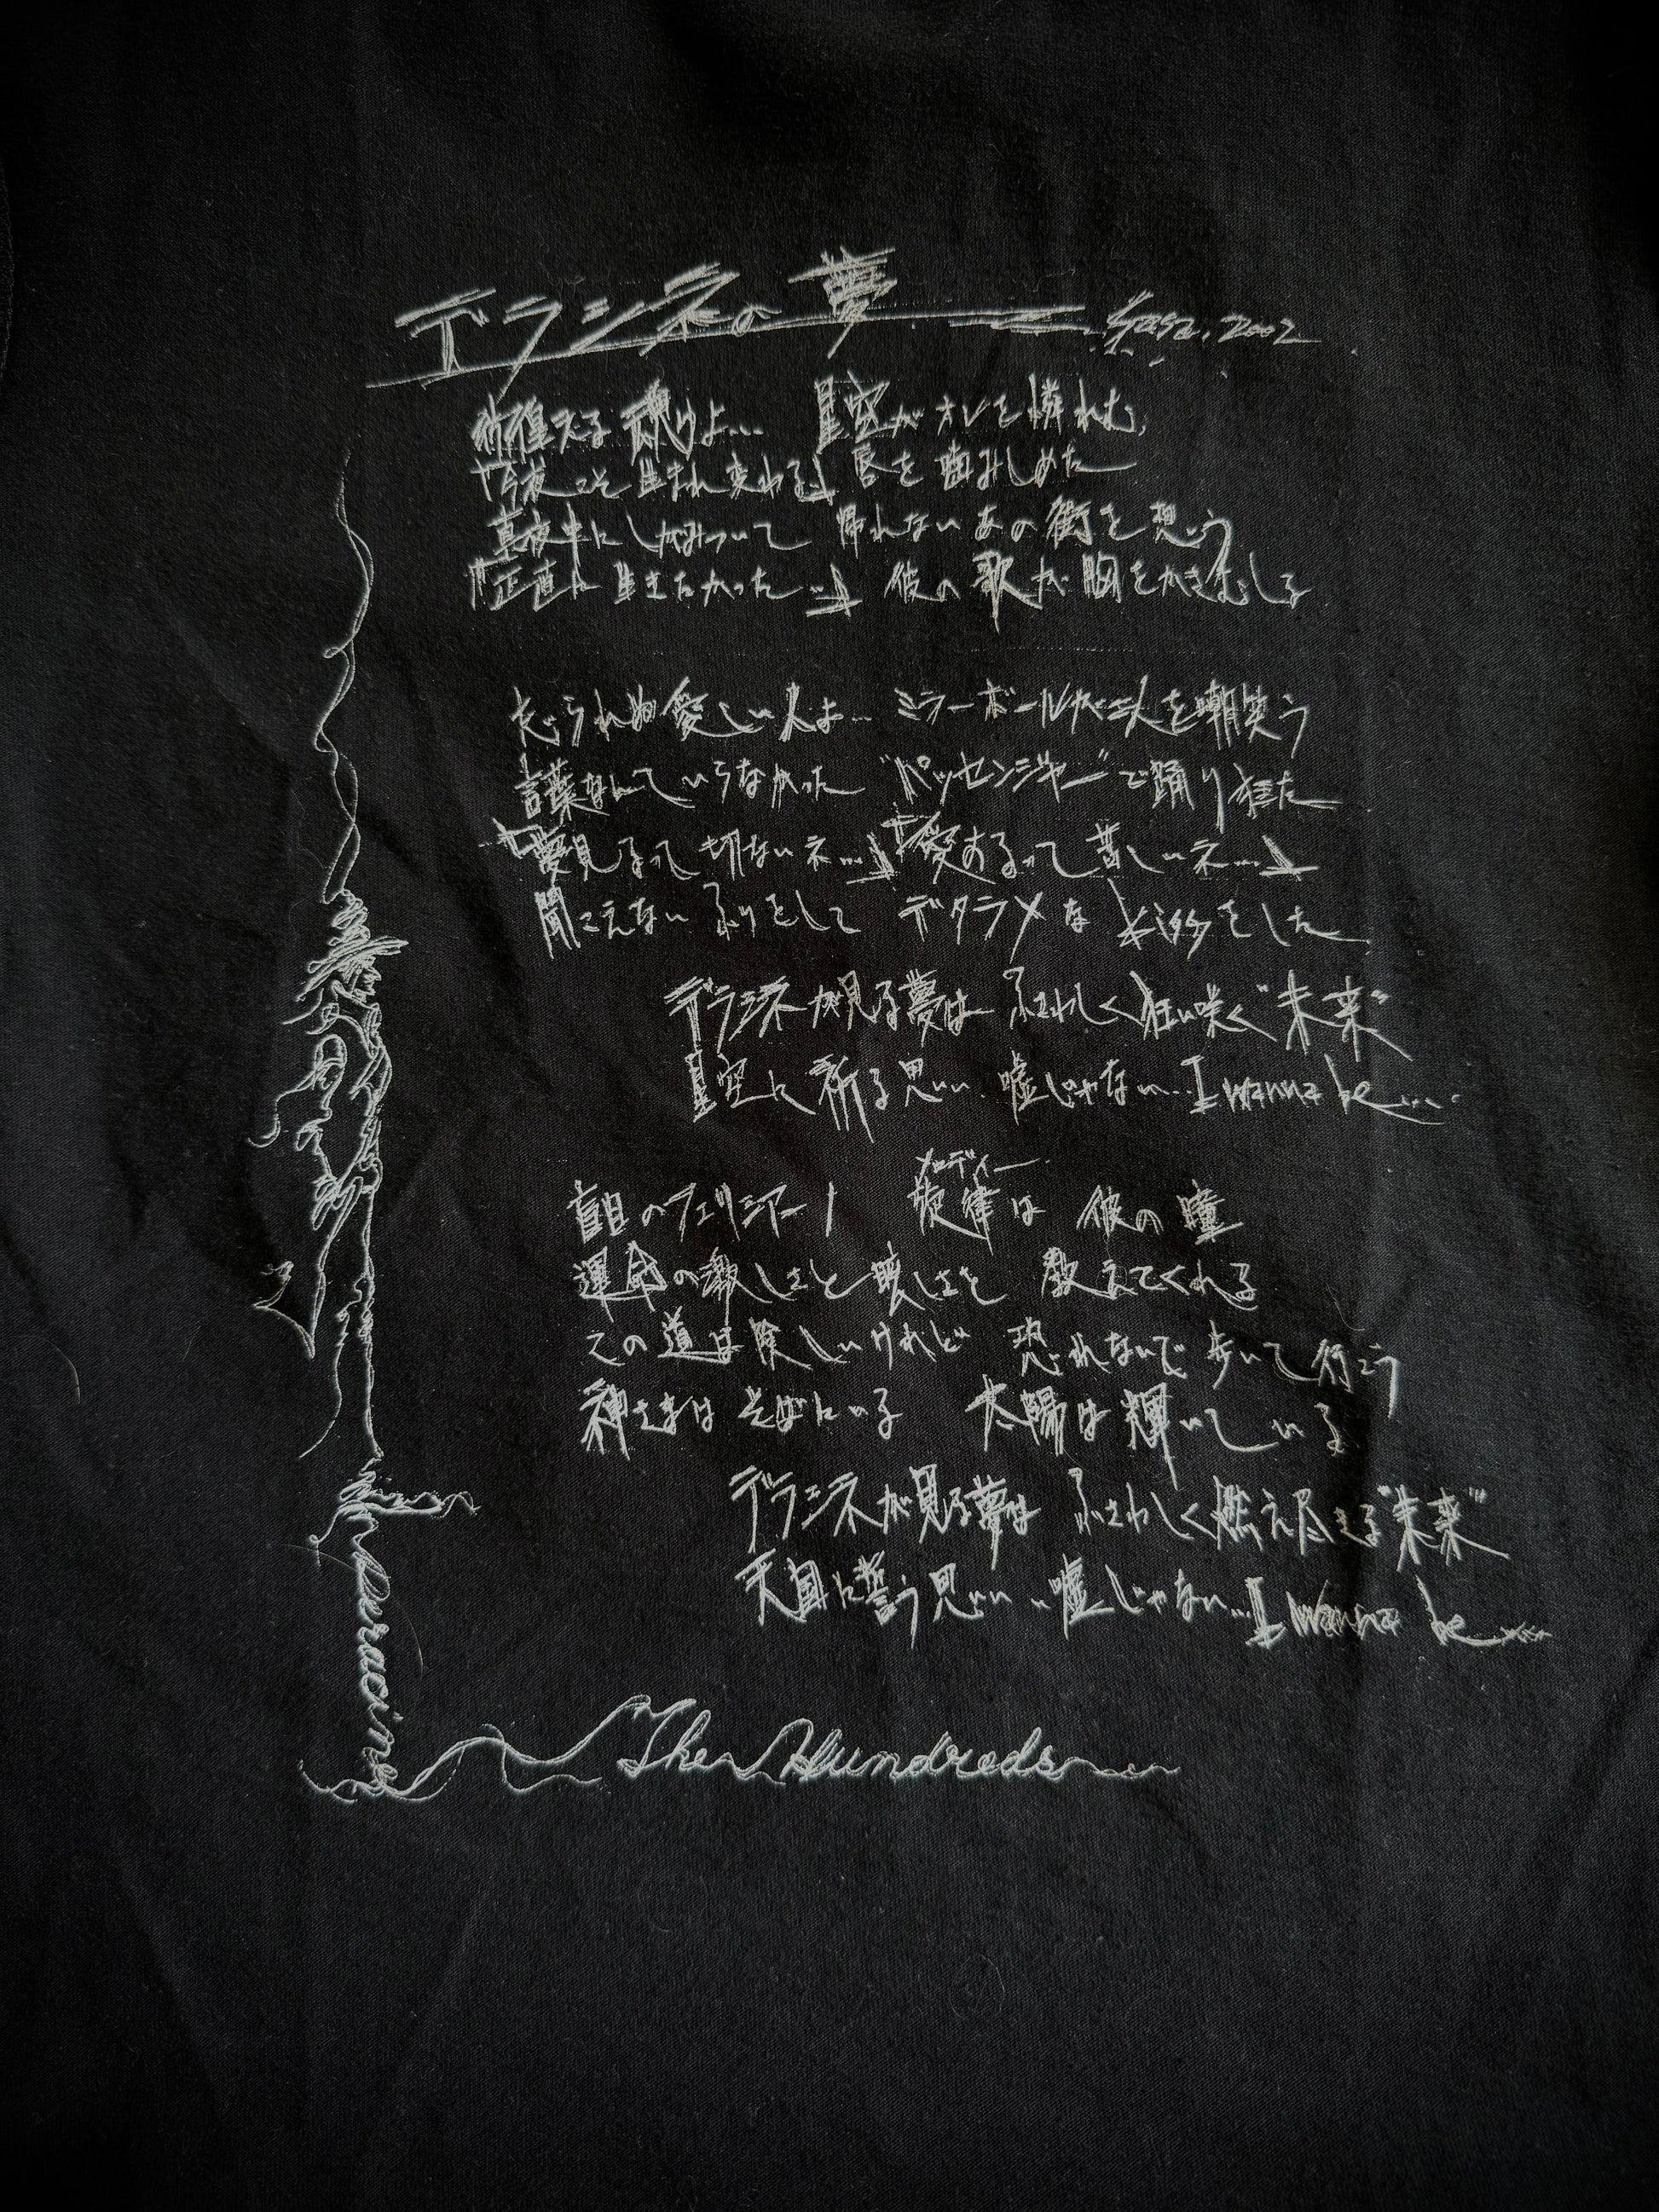 デラシネの夢 2002
彷徨える魂よ… 星空がオレを憐れむ
「今夜こそ生まれ変わる」唇を噛みしめた
真夜中にしがみついて 帰れないあの街を想う
「正直に生きたかった…」 彼の歌が胸をかきむしる
たどられぬ愛しい人よ… ミラーボールが二人を嘲笑う
言葉なんていらなかった "パッセンジャー"で踊り狂た
「夢見るって切ないネ…」「愛するって苦しいネ…」
聞こえないふりをして デタラメなキスをした
デラシネが見る夢は ふさわしく狂い咲く"未来"
星空に祈る思い 嘘じゃない… I wanna be…
メロディー
盲目のフェリシアーノ 旋律は 彼の瞳
運命の激しさと哀しさを 教えてくれる
この道は険しいけれど 恐れないで歩いて行こう
神さまはそばにいる 太陽は輝いている
デラシネが見る夢は ふさわしく燃え尽きる"未来"
天国に誓う思い…嘘じゃない… I wanna be…
Deracine
The Hundreds